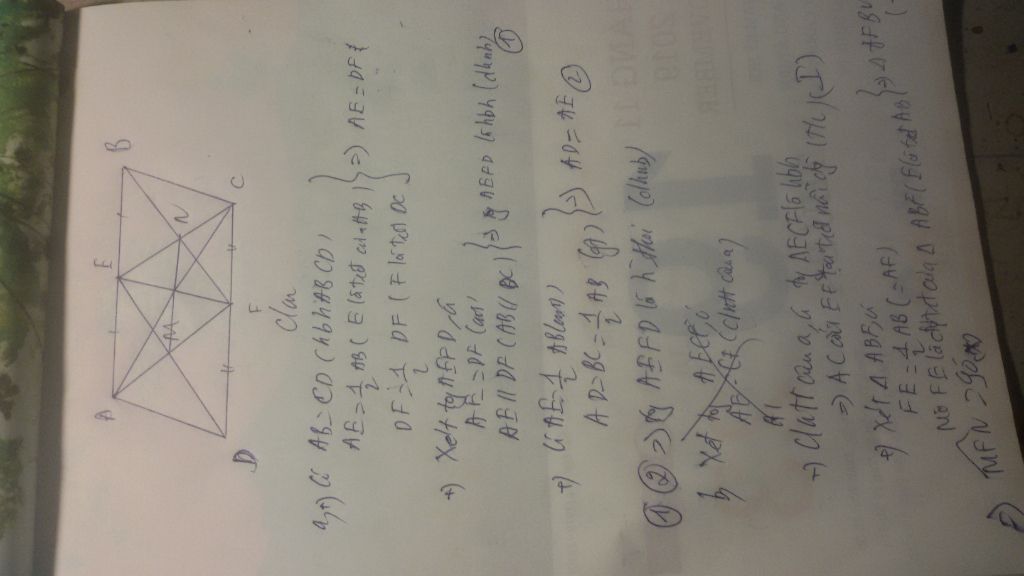 A E B
M N
D F C
C/m
a, +) Có AB = CD (hbh ABCD)
AE = 1/2 AB (E là tđ của AB) } => AE = DF
DF = 1/2 DF (F là tđ DC)
+) Xét tg AEFD có
AE = DF (cmt)
AE // DF (AB // DC) } => tg AEFD là hbh (dhnb) ①
+) Có AE = 1/2 AB (cmt)
AD = BC = 1/2 AB (gt) } => AD = AE ②
① ② => tg AEFD là h thoi (dhnb)
b, Xét tg AECF có
AE = CF (C/m tt câu a)
+) C/m tt câu a, có tg AECF là hbh
=> AC cắt EF tại tđ mỗi đg (t/c) (I)
+) Xét Δ ABF có
FE = 1/2 AB (= AF)
Mà FE là đg t/t của Δ ABF (E là tđ AB) } => Δ AFB v
MFN = 90